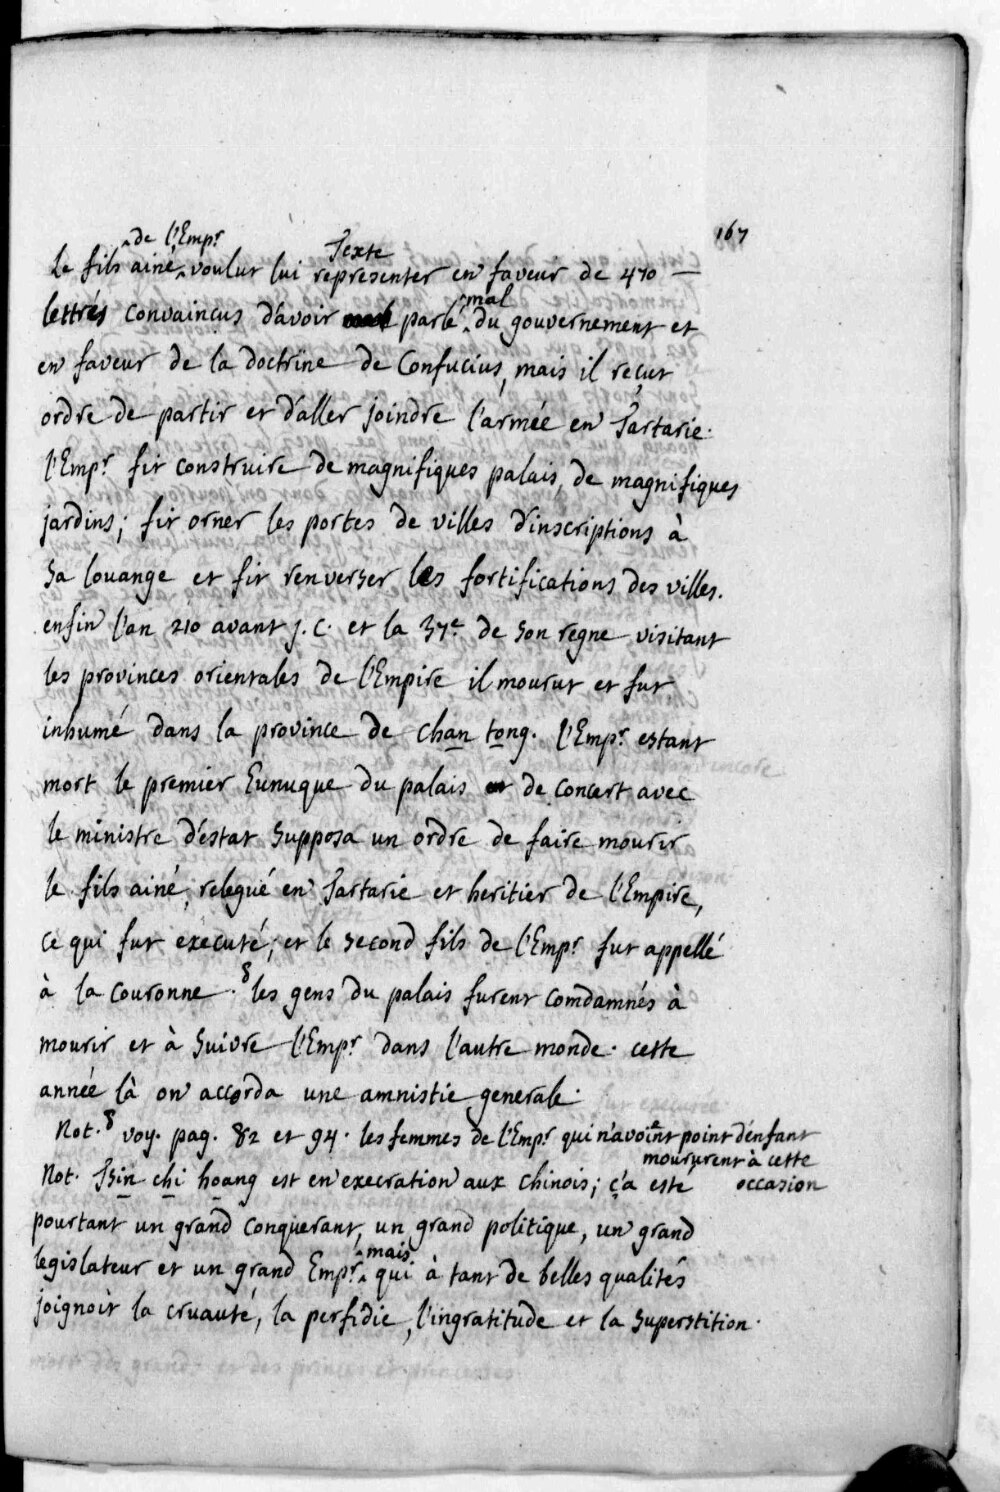 167
Texte
Le fils ainé ^de l'Emp.r voulut lui representer en faveur de 470 —
lettrés convaincus d'avoir parlé ^mal du gouvernement et
en faveur de la doctrine de Confucius, mais il reçut
ordre de partir et d'aller joindre l'armée en Tartarie.
l'Emp.r fit construire de magnifiques palais, de magnifiques
jardins; fit orner les portes de villes d'inscriptions à
sa louange et fit renverser les fortifications des villes.
enfin l'an 210 avant j. C. et la 37.e de son regne visitant
les provinces orientales de l'Empire il mourut et fut
inhumé dans la province de chan tong. l'Emp.r estant
mort le premier Eunuque du palais de concert avec
le ministre d'estat supposa un ordre de faire mourir
le fils ainé, relegué en Tartarie et heritier de l'Empire,
ce qui fut executé; et le second fils de l'Emp.r fut appellé
à la couronne. 8 les gens du palais furent comdamnés à
mourir et à suivre l'Emp.r dans l'autre monde. cette
année là on accorda une amnistie generale.
Not. 8 voy. pag. 82 et 94. les femmes de l'Emp.r qui n'avoint point d'enfant
moururent à cette
occasion
Not. Tsin chi hoang est en execration aux chinois; ç'a esté
pourtant un grand conquerant, un grand politique, un grand
legislateur et un grand Emp.r ^mais qui à tant de belles qualités
joignoit la cruauté, la perfidie, l'ingratitude et la superstition.